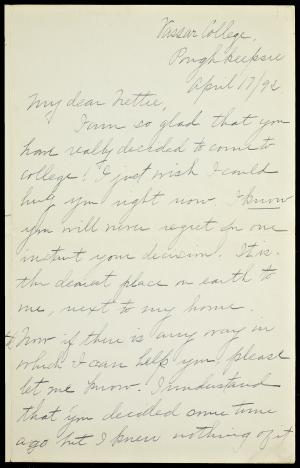 Vassar College,
Poughkeepsie
April 17/92
My dear Nettie,
I am so glad that you
have really decided to come to
college! I just wish I could
hug you right now. I know
you will never regret for one
instant your decision. It is
the dearest place on earth to
me, next to my home.
Now if there is any way in
which I can help you, please
let me know. I understand
that you decided some time
ago but I knew nothing of it